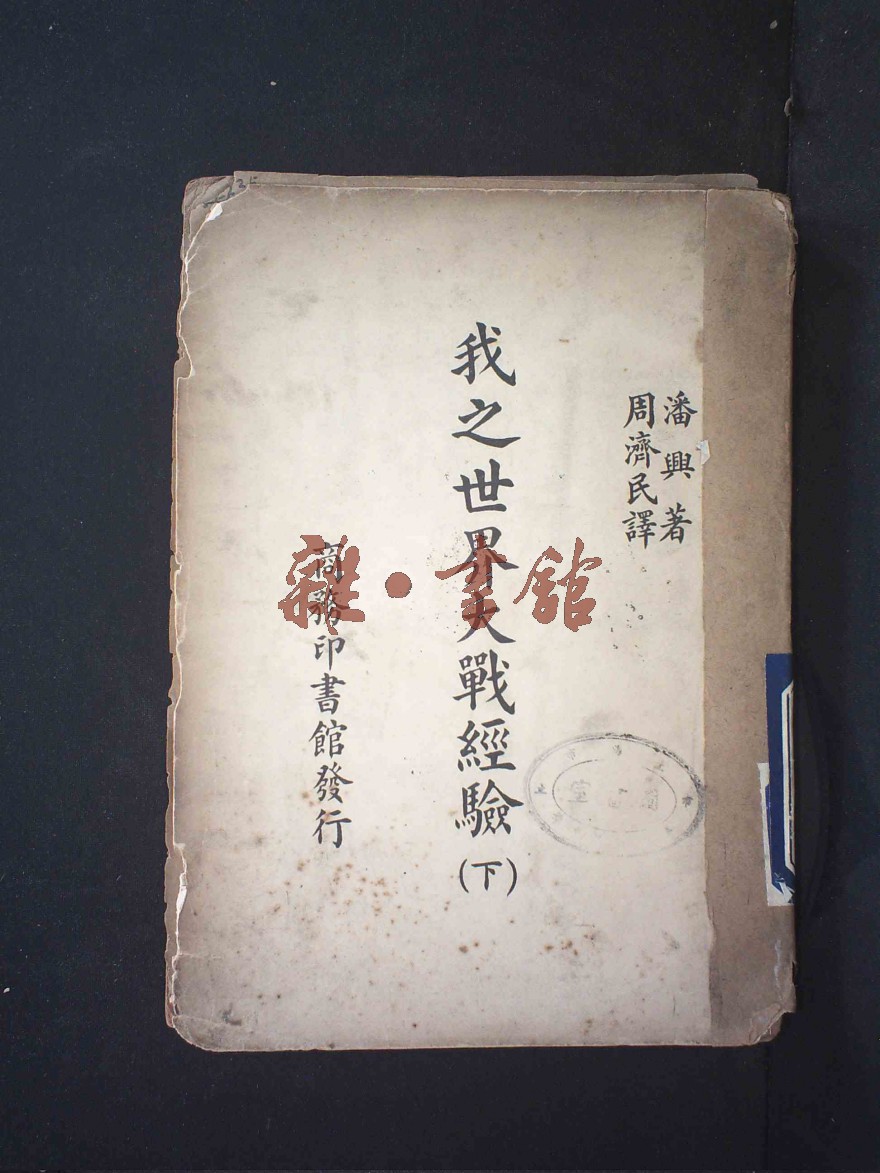 潘興著
周濟民譯
我之世界大戰經驗
（下）
商務印書館發行
雜·書館